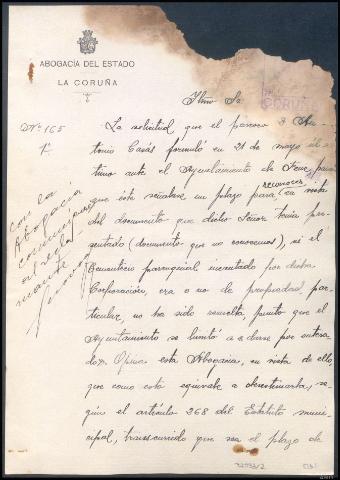 ABOGACÍA DEL ESTADO
LA CORUÑA
Iltmo Sr
CORUÑA
Nº 165
1º
La solicitud que el párroco D An-
tonio Casás formuló en 21 de mayo úl-
timo ante el Ayuntamiento de Fene, para
que éste señalase un plazo para reconocer, en vista
del documento que dicho Señor tenía pre-
sentado (documento que no conocemos), si el
Cementerio parroquial incautado por dicha
Corporación, era o no de propiedad par-
ticular, no ha sido resuelta, puesto que el
Ayuntamiento se limitó a darse por entera-
do. Opina esta Abogacía, en vista de ello,
que como esto equivale a desestimarla, se-
gún el artículo 268 del Estatuto muni-
cipal, transcurrido que sea el plazo de
con la
Abogacía